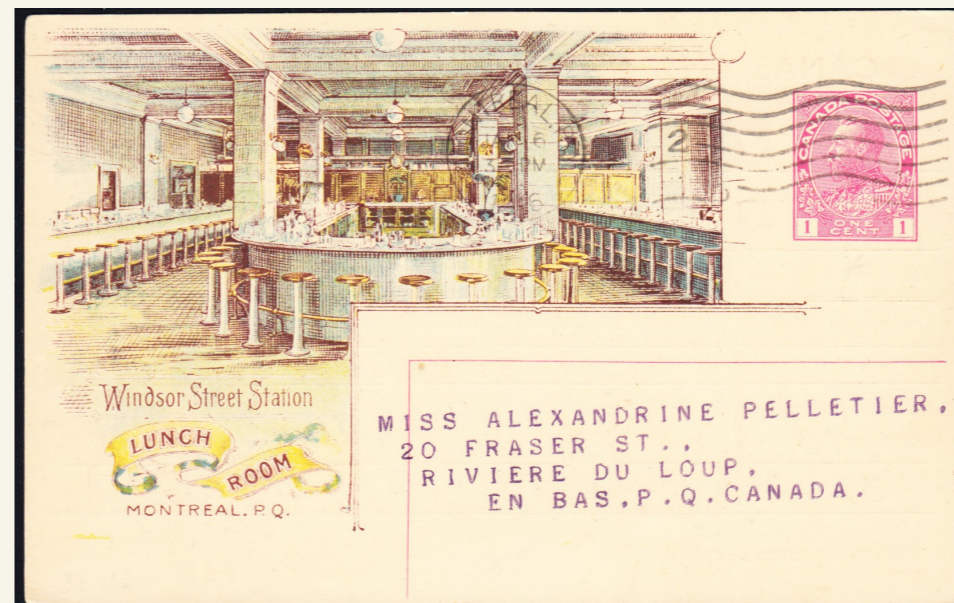 CANADA POSTAGE
1 ONE CENT 1
6
PM
2
Windsor Street Station
LUNCH
ROOM
MONTREAL. P.Q.
MISS ALEXANDRINE PELLETIER,
20 FRASER ST.,
RIVIERE DU LOUP,
EN BAS, P.Q. CANADA.